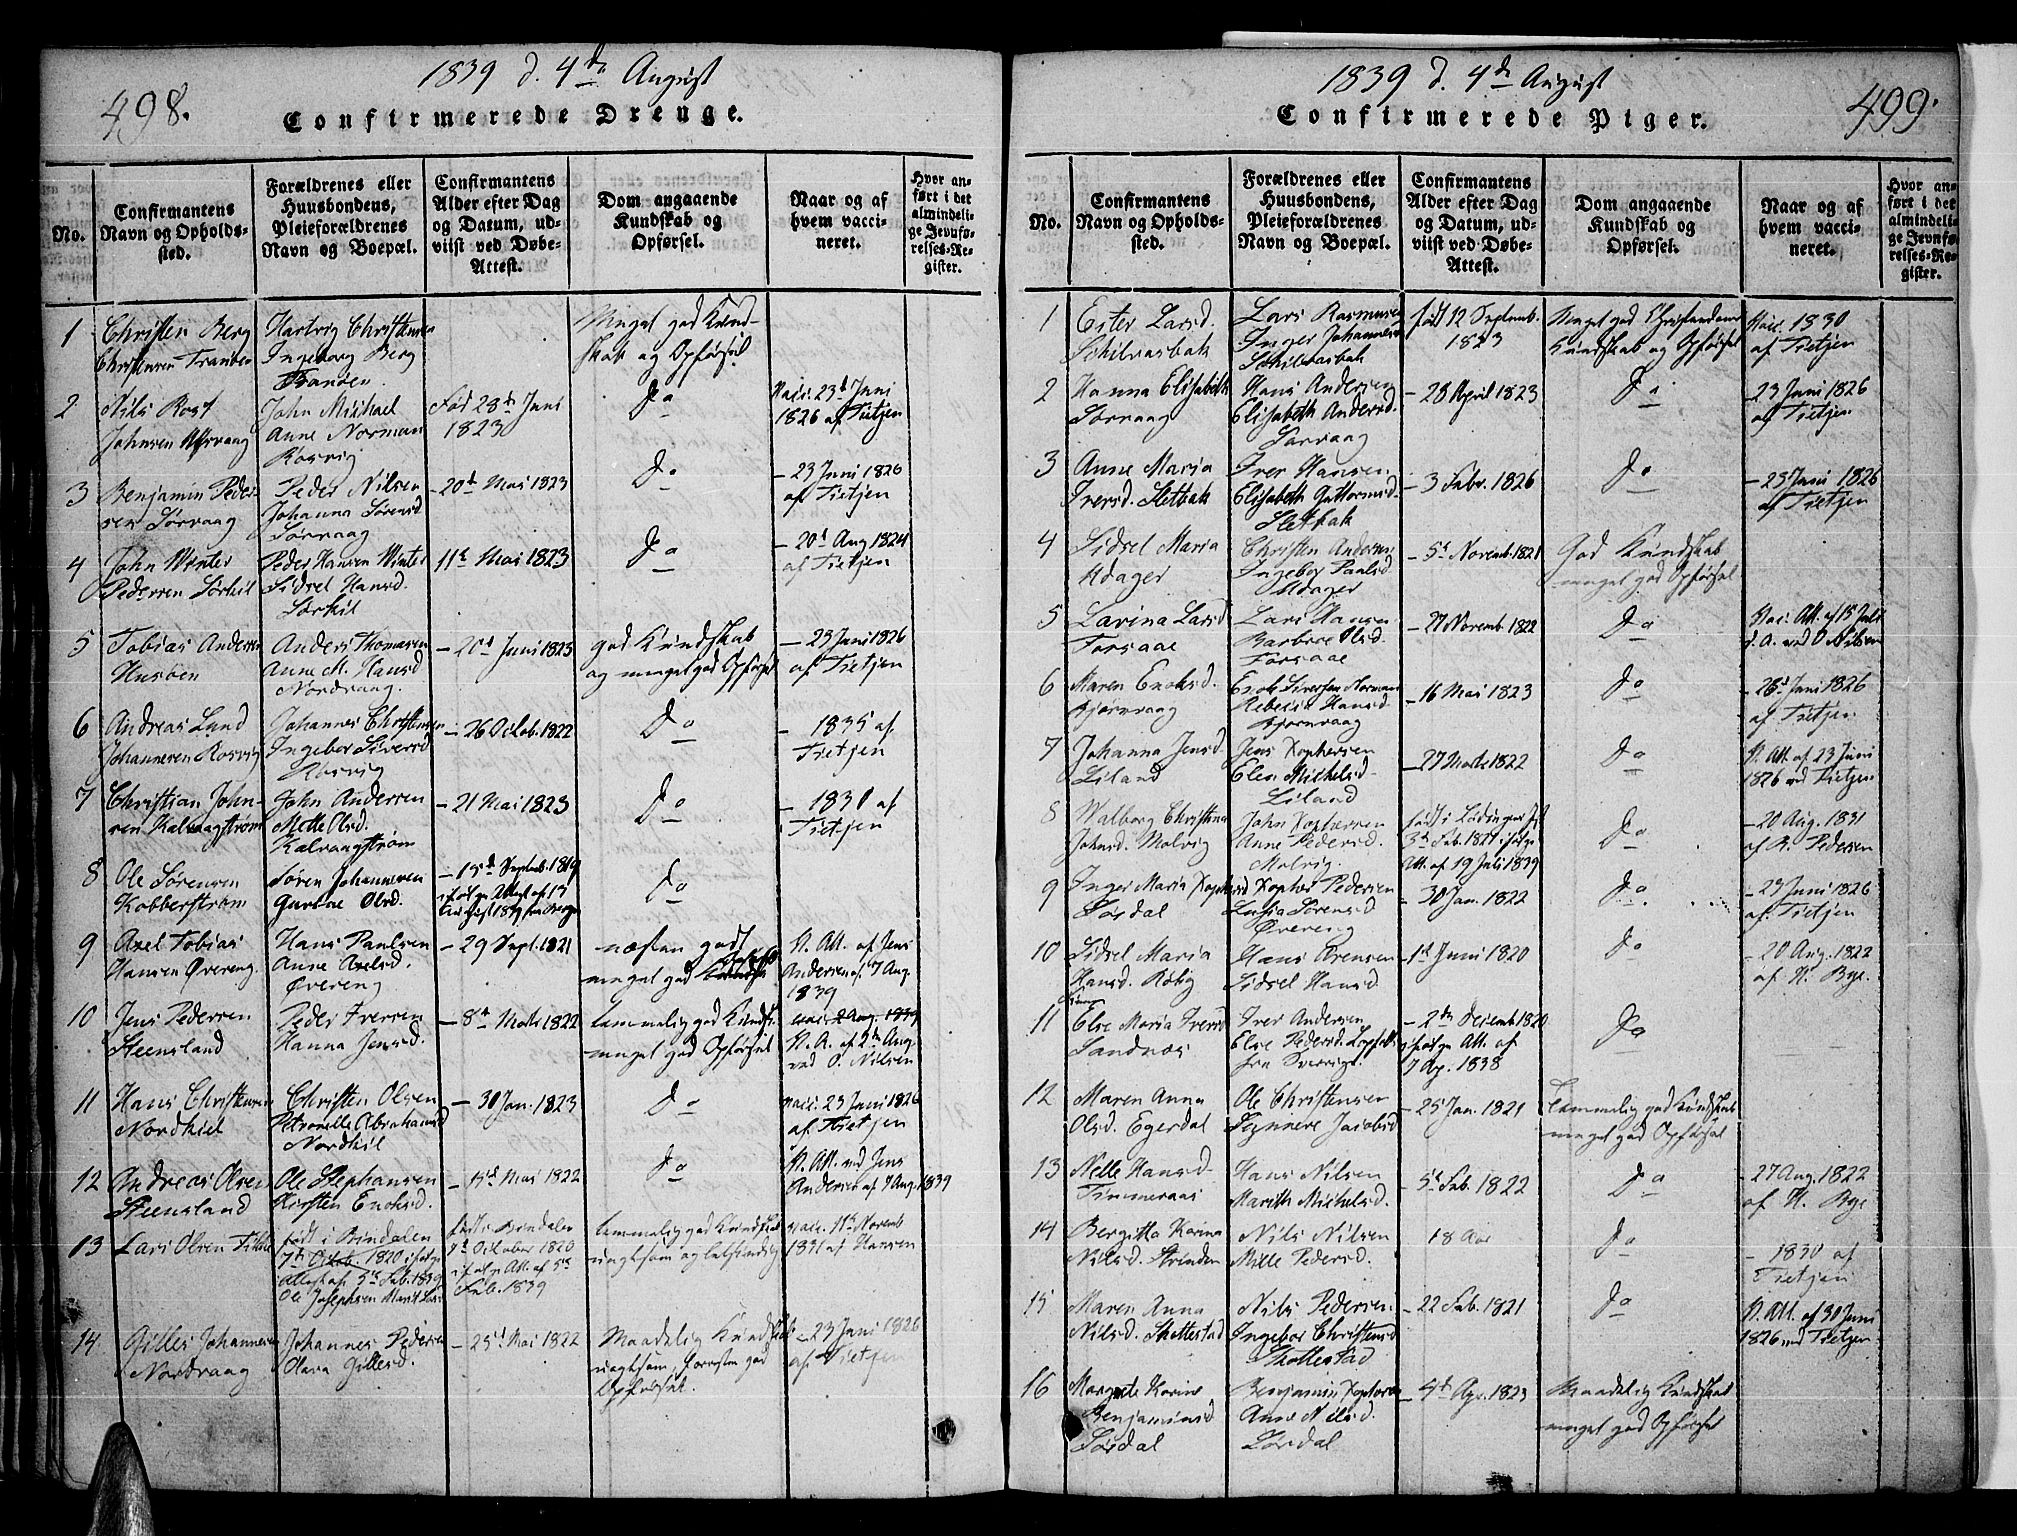 498.
1839 d. 4de August
Confirmerede Drenge.
No.
Confirmantens Navn og Opholdssted.
Forældrenes eller Huusbondens, Pleieforældrenes Navn og Boepæl.
Confirmantens Alder efter Dag og Datum, udviist ved Døbe-Attest.
Dom angaaende Kundskab og Opførsel.
Naar og af hvem vaccineret.
Hvor anført i det almindelige Jevnførelses-Register.
1
Christen Berg
Christensen Tranøen
Hartvig Christensen
Ingeborg Berg
Tranöen
Meget god Kundskab og Opførsel
2
Nils Rost
Johnsen
John Michael
Anne Norman
Rosvig
Fød 28de Juni
1823
Do
Vacc. 23d Juni
1826 af Tietjen
3
Benjamin Pedersen Sørvaag
Peder Nilsen
Johanna Sørensd
Sørvaag
- 20d Mai 1823
Do
- 23 Juni 1826
af Tietjen
4
John Winter
Pedersen Sørkil
Peder Hansen Winter
Sidsel Hansd.
Sørkil
11te Mai 1823
Do
- 20d Aug 1824
af Tietjen
5
Tobias Andersen
Husbøen
Anders Thomasen
Anne M. Hansd
Nordvaag.
- 20d Juni 1823
god Kundskab
og meget god Opførsel
- 23 Juni 1826
af Tietjen
6
Andreas Lund
Johannesen Rosvig
Johannes Christensen
Ingebor Siversd
Rosvig
- 26 Octob. 1822
Do
- 1835 af
Tietjen
7
Christian Johnsen Kalvaagstrøm
John Andersen
Mette Olsd.
Kalvaagstrøm
- 21 Mai 1823
Do
- 1830 af
Tietjen
8
Ole Sørensen
Kobberstrøm
Søren Johannesen
Gurine Olsd.
- 15d Septemb. 1819
ifølge Attest af 13
August 1839
Do
9
Axel Tobias
Hansen Øvereng.
Hans Paulsen
Anne Axelsd.
Øvereng
- 29 Sept. 1821
næsten godt
meget god
N. Att. af Jens
Andersen af 7 Aug.
1839
10
Jens Pedersen
Steensland
Peder Iversen
Hanna Jensd.
- 8de Marts 1822
temmelig god Kundsk.
meget god Opførsel
N. A. af 2de Aug
ved O. Nilsen
11
Hans Christensen
Nordkiel
Christen Olsen
Petronelle Abrahamsd
Nordkil
- 30 Jan. 1823
Do
vacc. 23 Juni 1826
af Tietjen
12
Andreas Olsen
Steensland
Ole Stephansen
Kirsten Enoksd.
- 15d Mai 1822
Do
N. Att. ved Jens
Andersen af 7 Aug. 1839
13
Lars Olsen
født i Bindalen
7de Octob. 1820 ifølge
Attest af 5te Feb. 1839
Ole Josephsen Marit Lars
født i Bindalen
7de October 1820
ifølge Att. af 5te
Feb. 1839
temmelig god Kundskab
vacc. 11te Novemb
1831 af Hansen
14
Gilles Johannesen
Nordvaag
Johannes Pedersen
Olava Gillesd.
- 25d Mai 1822
Maadelig Kundskab
Opførsel.
- 23 Juni 1826
af Tietjen
1839 d. 4de August
499.
Confirmerede Piger.
No.
Confirmantens Navn og Opholdssted.
Forældrenes eller Huusbondens, Pleieforældrenes Navn og Boepæl.
Confirmantens Alder efter Dag og Datum, udviist ved Døbe-Attest.
Dom angaaende Kundskab og Opførsel.
Naar og af hvem vaccineret.
Hvor anført i det almindelige Jevnførelses-Register.
1
Ester Larsd.
Schilvasbak
Lars Rasmusen
Inger Johannesd
Schilvasbak
født 12 Septemb.
1823
Meget god Christendoms
Kundskab og Opførsel
Vacc. 1830
af Tietjen
2
Hanna Elisabeth
Sørvaag
Hans Andersen
Elisabeth Andersd.
Sørvaag
- 28 April 1823
Do
- 23 Juni 1826
af Tietjen
3
Anne Maria
Iversd. Sletbak
Iver Hansen
Elisabeth Guttormsd.
Sletbak
- 3 Febr. 1826
Do
- 23 Juni 1826
af Tietjen
4
Sidsel Maria
Udager
Christen Andersen
Ingebor Paulsd
Udager
- 5te Novemb. 1821
God Kundskab
meget god Opførsel
5
Lavina Larsd
Forsaae
Lars Hansen
Barbroe Olsd.
Forsaae
- 27 Novemb. 1822
Do
Vac. Att. af 15 Juli
d. A. ved O Nilsen
6
Maren Enoksd.
Bjørnvaag
Enok Siversen Norman
Rebecca Hansd
Bjørnvaag
- 16 Mai 1823
Do
- 26d Juni 1826
af Tietjen
7
Johanna Jensd.
Liland
Jens Xophersen
Elen Michelsd.
Liland
- 27 Marts 1822
Do
N. Att. af 23 Juni
1826 ved Tietjen
8
Walborg Christina
Johnsd. Molvig
John Xophersen
Anne Pedersd.
Molvig.
født i Lødingen
3de Feb. 1821 ifølge
Att. af 19 Juli 1839
Do
- 20 Aug. 1831
af R. Pedersen
9
Inger Maria Xophersd
Sørdal
Xopher Pedersen
Lusia Sørensd
Øvereng
- 30 Jan. 1822
Do
- 23 Juni 1826
af Tietjen
10
Sidsel Maria
Hansd. Røkig
Hans Ørensen
Sidsel Hansd.
- 1d Juni 1820
Do
- 20 Aug. 1822
af H. Bye.
11
Else Maria Iversd
Sandnæs
Iver Andersen
Else Pedersd.
fra Sverrige.
- 2den Decemb 1820
ifølge Att. af
7 Ap. 1838
Do
12
Maren Anna
Olsd. Egerdal
Ole Christensen
Synneve Jacobsd
- 25 Jan. 1821
temmelig god Kundskab
meget god Opførsel
13
Nelle Hansd.
Timmeraas
Hans Nilsen
Marith Michelsd.
- 5te Feb. 1822
Do
- 27 Aug. 1822
af H. Bye
14
Bergitta Karina
Nilsd. Strinden
Nils Nilsen
Mille Pedersd.
18 Aar
Do
- 1830 af
Tietjen
15
Maren Anna
Nilsd. Skottestad
Nils Pedersen
Ingebor Christensd
Skottestad
- 22 Feb. 1821
Do
N. Att. af 30 Juni
1826 ved Tietjen
16
Margrete Karine
Benjaminsd
Sørdal
Benjamin Xophersen
Anne Nilsd.
Sørdal
- 4de Apr. 1823
Maadelig Kundskab
meget god Opførsel